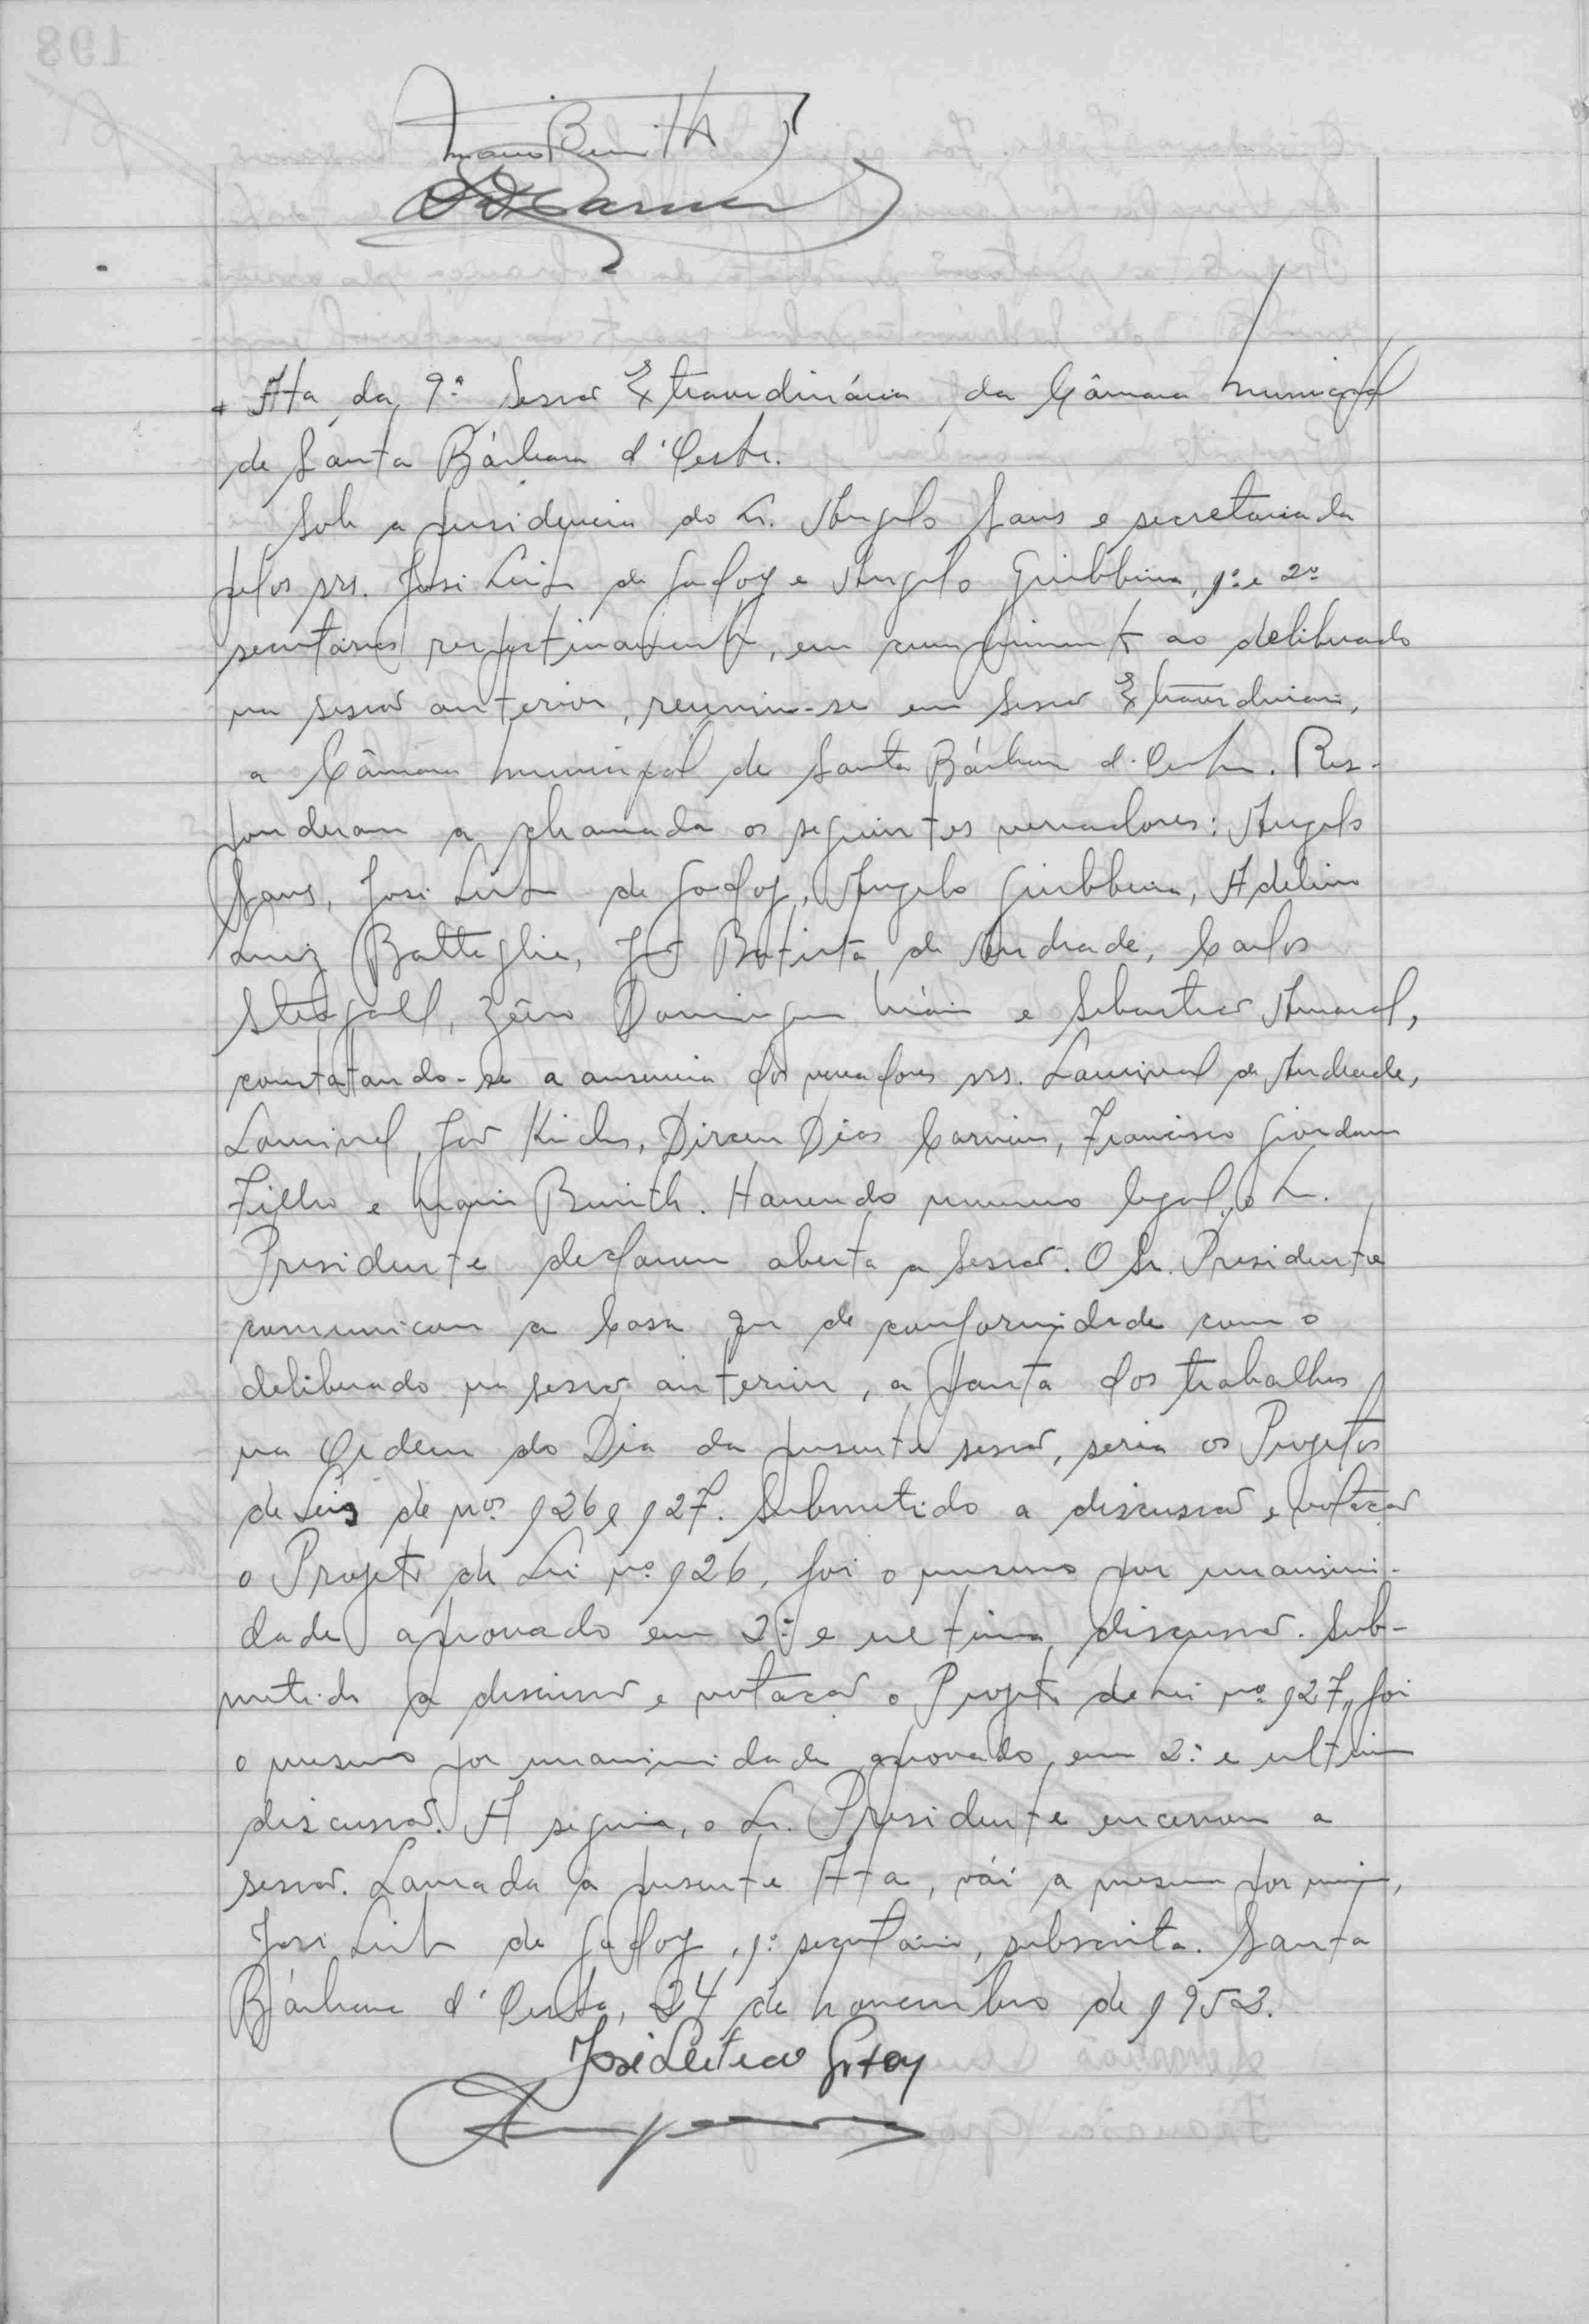 Mario Benith
Ata da 9ª Sessão Extraordinária da Câmara Municipal
de Santa Bárbara d'Oeste.
Sob a presidencia do Sr. Angelo Sans e secretariada
pelos srs. José Leite de Godoy e Angelo Giubbina, 1º e 2º
secretários respectivamente, em cumprimento ao deliberado
na sessão anterior, reuniu-se em Sessão Extraordinaria,
a Câmara Municipal de Santa Bárbara d'Oeste. Res-
ponderam a chamada os seguintes vereadores: Angelo
Sans, José Leite de Godoy, Angelo Giubbina, Adelino
Luiz Batteglia, João Batista de Andrade, Carlos
Steagall, Zéino Domingues Maia e Sebastião Amaral,
constatando-se a ausencia dos vereadores srs. Lourival de Andrade,
Lourival, João Dirceu Dias Carneiro, Francisco Giordano
Filho e Mario Benith. Havendo numero legal, o Sr.
Presidente declarou aberta a Sessão. O Sr. Presidente
comunicou a Casa que de conformidade com o
deliberado na sessão anterior, a pauta dos trabalhos
na Ordem do Dia da presente sessão, seria os Projetos
de Leis de nos 126 e 127. Submetido a discussão e votação
o Projeto de Lei nº 126, foi o mesmo por unanimi-
dade aprovado em 2ª e ultima discussão. Sub-
metido a discussão e votação o Projeto de Lei nº 127, foi
o mesmo por unanimidade aprovado, em 2ª e ultima
discussão. A seguir, o Sr. Presidente encerrou a
sessão. Lavrada a presente Ata, vái a mesma por mim,
José Leite de Godoy, 1º secretário, subscrita. Santa
Bárbara d'Oeste, 24 de novembro de 1952.
José Leite de Godoy